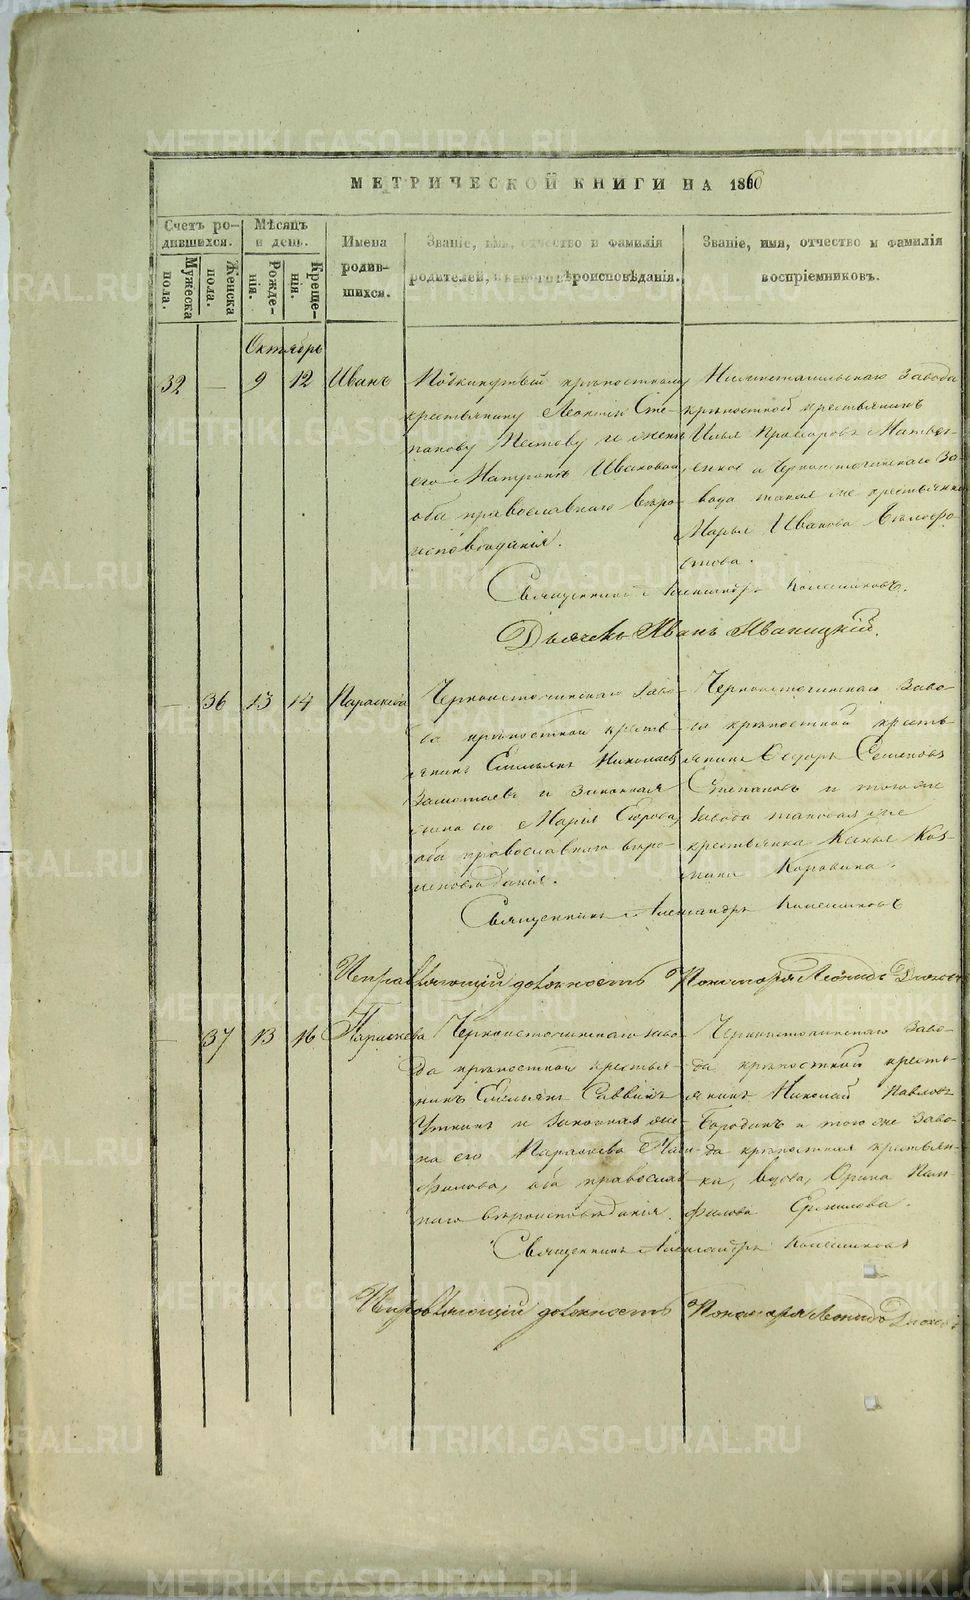 МЕТРИЧЕСКОЙ КНИГИ НА 1860
Счетъ ро-
дившихся.
Мужеска
пола.
Женска
пола.
Мѣсяцъ
и день.
Рожде-
нія.
Креще-
нія.
Имена
родив-
шихся.
Званіе, имя, отчество и фамилія
родителей, и какого вѣроисповѣданія.
Званіе, имя, отчество и фамилія
воспріемниковъ.
Октябрь
32 — 9 12 Иванъ
Подкинутый крѣпостному
крестьянину Леонтію Сте-
панову Пестову и женѣ
его Матронѣ Ивановой,
оба православнаго вѣро-
исповѣданія.
Нижнетагильскаго завода
крѣпостной крестьянинъ
Илья
а Черноисточинскаго За-
вода такая же крестьянка
Марья Иванова
Священникъ Александръ Колесниковъ.
Дьячекъ Иванъ Иваницкій.
— 36 13 14 Параскева
Черноисточинскаго Заво-
да крѣпостной кресть-
янинъ Емельянъ Николаевъ
и законная
жена его Марія Егорова,
оба православнаго вѣро-
исповѣданія.
Черноисточинскаго Заво-
да крѣпостной кресть-
янинъ Ѳедоръ Семеновъ
Степановъ и того же
завода таковая же
крестьянка Ксенья Коз-
мина Коровина.
Священникъ Александръ Колесниковъ
Исправляющій должность Пономаря Леонидъ
— 37 13 16 Параскева
Черноисточинскаго заво-
да крѣпостной крестья-
нинъ Емельянъ Саввинъ
Уткинъ и законная же-
на его Параскева Пан-
филова, оба православ-
наго вѣроисповѣданія.
Черноисточинскаго Заво-
да крѣпостной кресть-
янинъ Николай Павловъ
Бородинъ и того же Заво-
да крѣпостная крестьян-
ка, вдова, Орина Пан-
филова Ермилова.
Священникъ Александръ Колесниковъ
Исправляющій должность Пономаря Леонидъ
METRIKI.GASO-URAL.RU